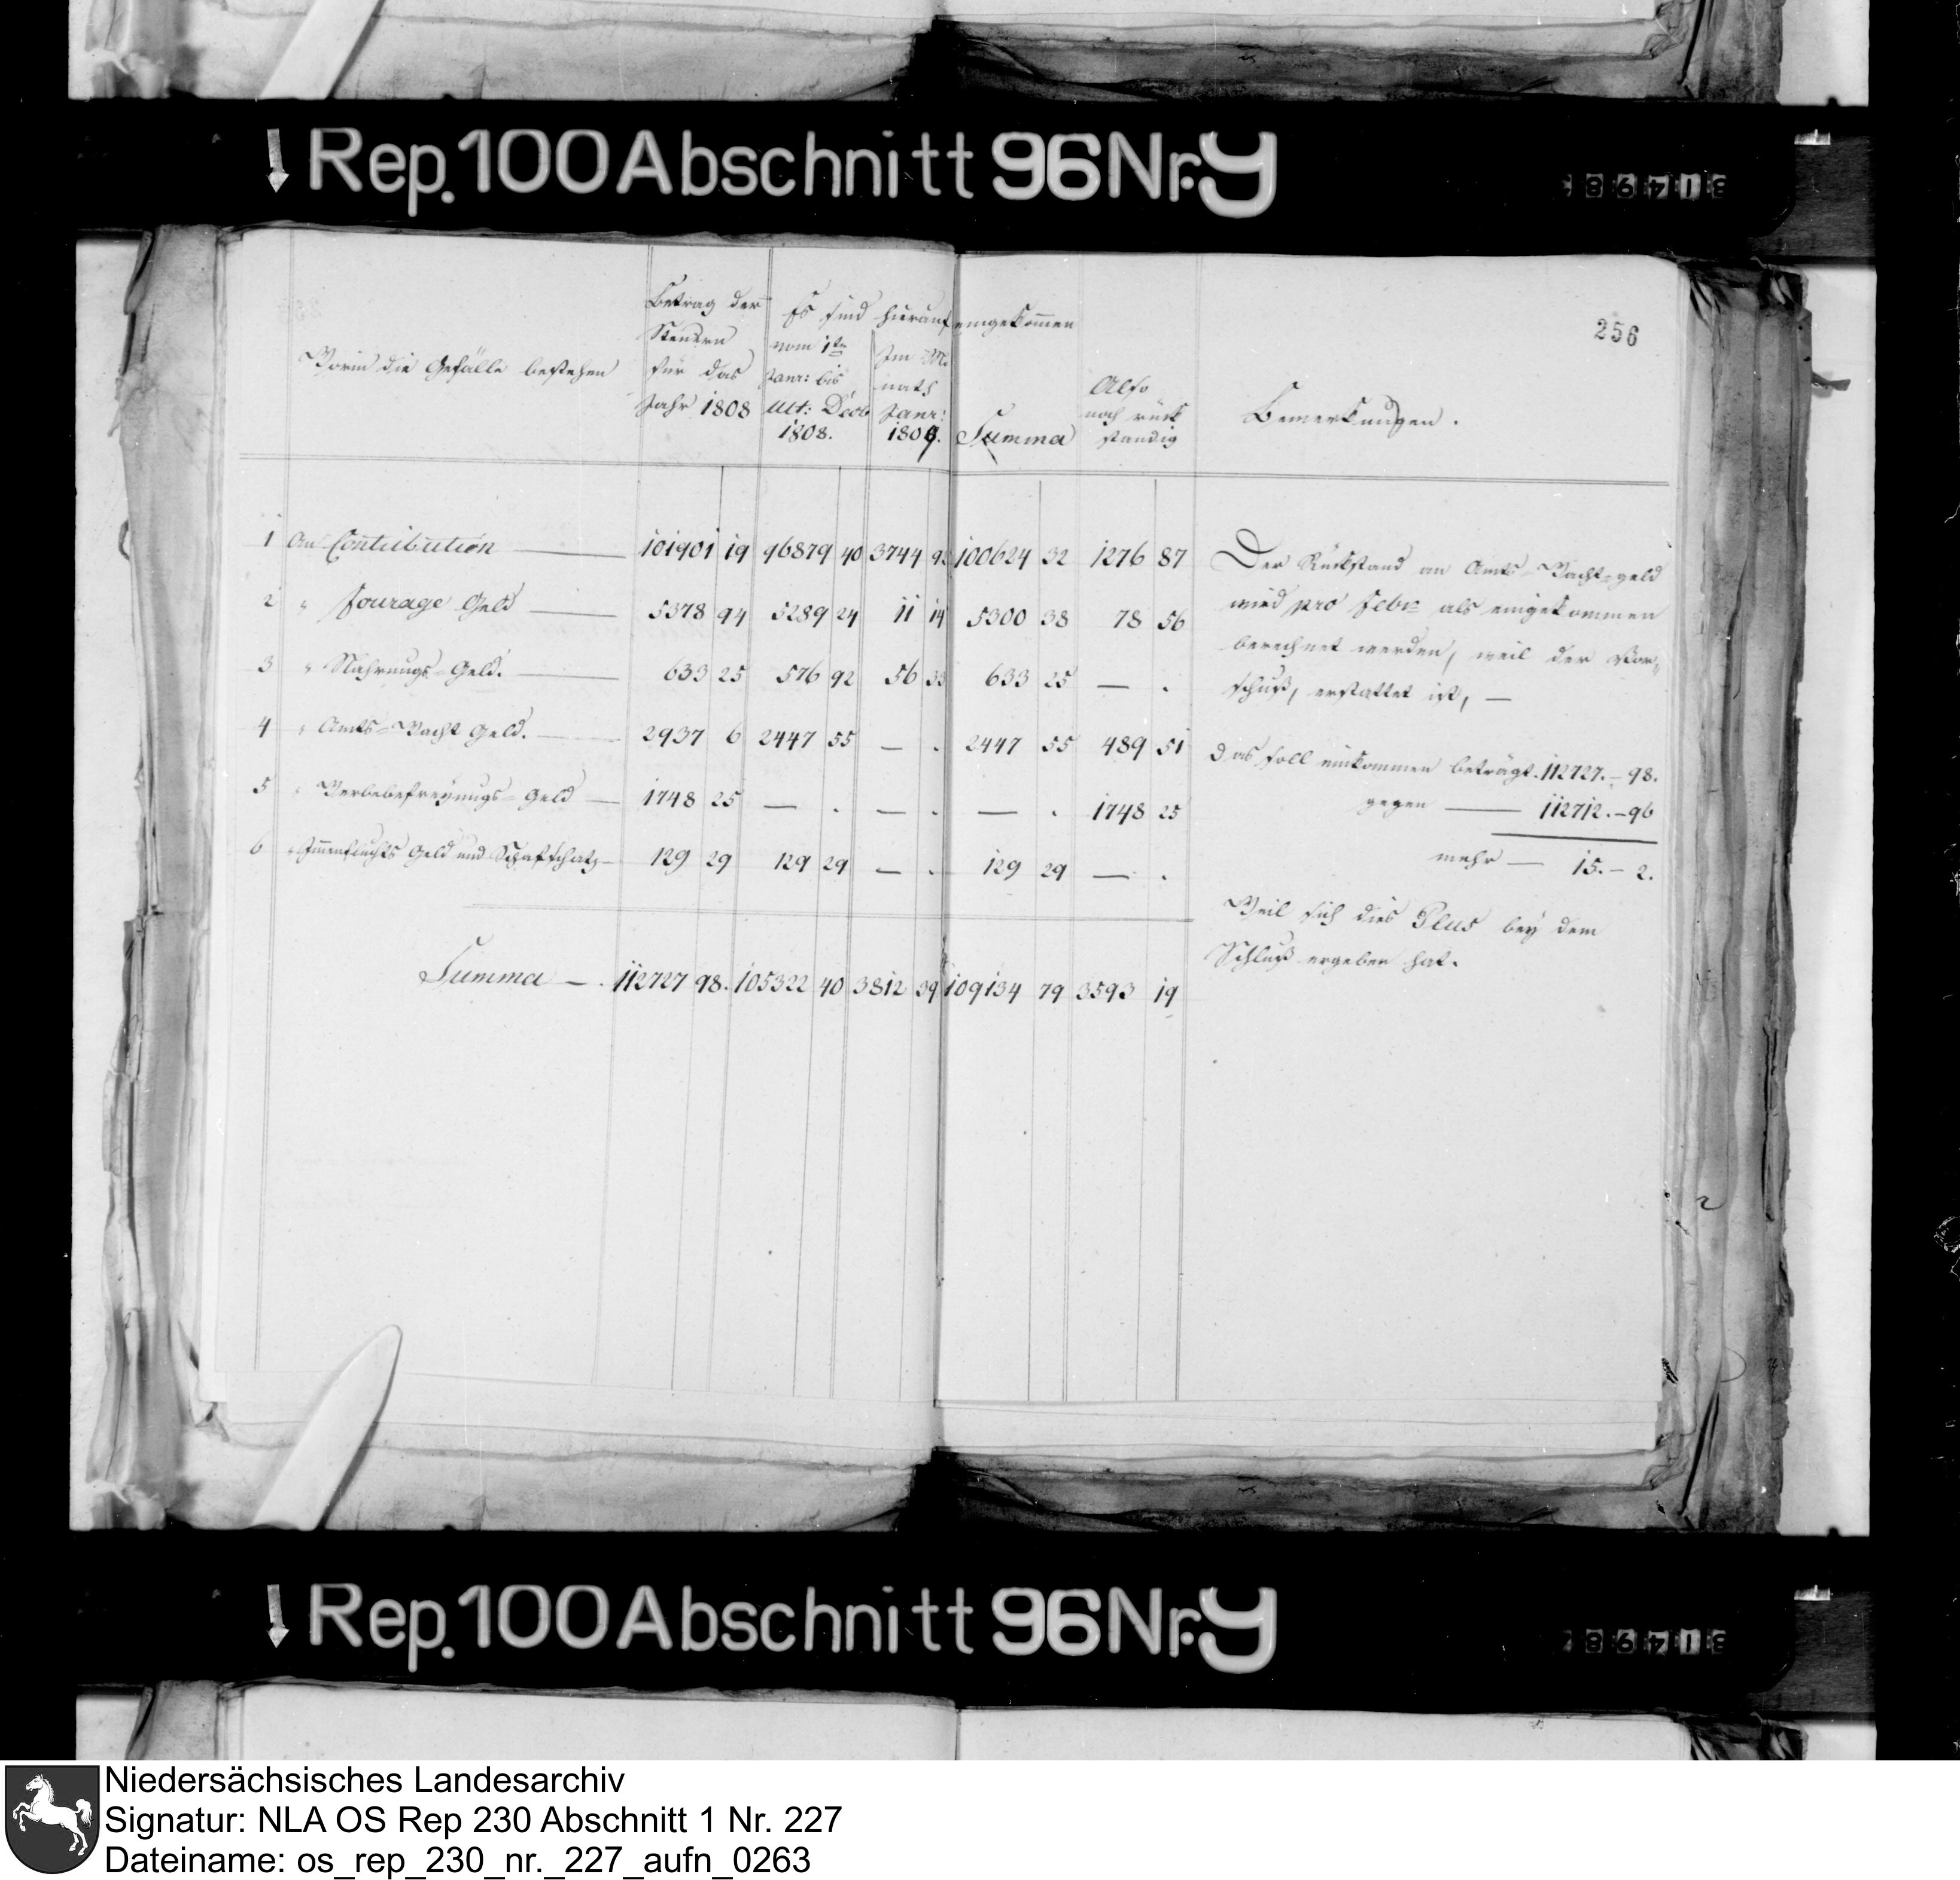 Rep. 100 Abschnitt 96 Nr. 9
256
Worin die Gefälle bestehen
Betrag der Steuern für das Jahr 1808
Es sind hierauf eingekommen
vom 1ten Janr: bis ult: Decb 1808.
Im Monath Janr: 1809.
Summa
Also noch rückständig
Bemerkungen.
1 An Contribution — 101901 19 96879 40 3744 92 100624 32 1276 87
2 " Fourage Geld — 5378 94 5289 24 11 14 5300 38 78 56
3 " Nahrungs-Geld. — 633 25 576 92 56 33 633 25 — .
4 " Amts-Wacht Geld. — 2937 6 2447 55 — . 2447 55 489 51
5 " Werbebefreyungs-Geld — 1748 25 — . — . — . 1748 25
6 " Immenfluchts Geld und Schafschatz — 129 29 129 29 — . 129 29 — .
Summa — . 112727 98. 105322 40 3812 39 109134 79 3593 19
Der Rückstand an Amts-Wacht-geld
wird pro Febr als eingekommen
berechnet werden, weil der Vor-
schuß, erstattet ist, —
das soll einkommen beträgt. 112727. – 98.
gegen — 112712. – 96
mehr — 15. – 2.
Weil sich dies Plus bey dem
Schluß ergeben hat.
Rep. 100 Abschnitt 96 Nr. 9
Niedersächsisches Landesarchiv
Signatur: NLA OS Rep 230 Abschnitt 1 Nr. 227
Dateiname: os_rep_230_nr._227_aufn_0263